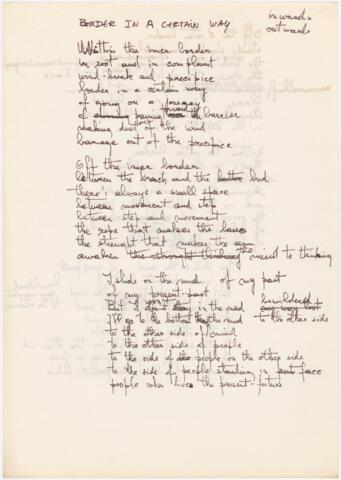 BORDER IN A CERTAIN WAY
inwards
outwards
Within the inner border
in rot and in complaint
wind-break and precipice
border in a certain way
of going on a journey
of barrier
making dust of the wind
barrage out of the precipice
Off the inner border
between the branch and the bud
there's always a small space
between movement and step
between step and movement
the rope that makes the
the strength that makes the arm
awaken the strength thinking the muscle to thinking
I slide on the mud of my past
or my present-past
But I won't stay in the mud bewildered
I'll go to the bottom of the mud to the other side
to the other side of mind
to the other side of people
to the side of the people on the other side
to the side of people standing in face
people who live the present-future